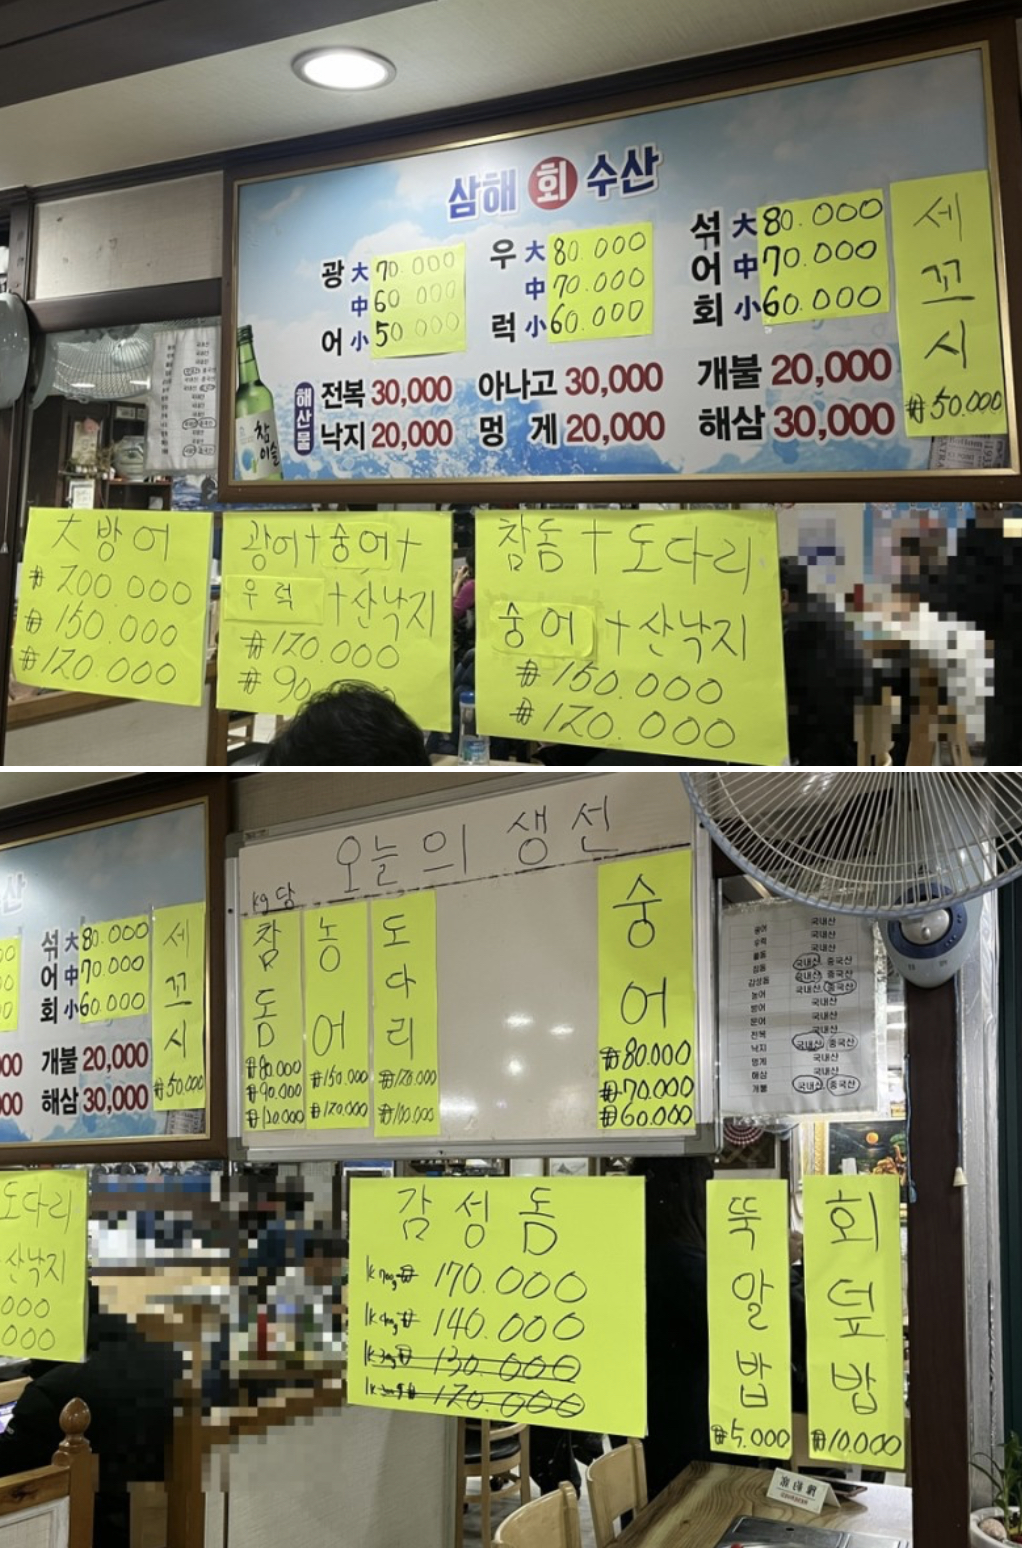 삼해 회 수산
광어
大 70.000
中 60.000
小 50.000
우럭
大 80.000
中 70.000
小 60.000
석어회
大 80.000
中 70.000
小 60.000
세꼬시
₩50.000
해산물
전복 30,000 아나고 30,000 개불 20,000
낙지 20,000 멍게 20,000 해삼 30,000
참이슬
大방어
₩200.000
₩150.000
₩120.000
광어+숭어+
우럭+산낙지
₩120.000
₩90
참돔+도다리
숭어+산낙지
₩150.000
₩120.000
산
석어회
大 80.000
中 70.000
小 60.000
세꼬시
₩50.000
00 개불 20,000
00 해삼 30,000
오늘의 생선
kg당
참돔
₩80.000
₩90.000
₩120.000
농어
₩150.000
₩120.000
도다리
₩120.000
₩100.000
숭어
₩80.000
₩70.000
₩60.000
국내산
국내산
국내산
국내산 중국산
국내산 중국산
농어 국내산
방어 국내산
문어 국내산
전복 국내산
낙지 국내산 중국산
멍게 국내산
해삼 국내산
개불 국내산 중국산
도다리
산낙지
000
000
감성돔
₩170.000
₩140.000
130.000
120.000
뚝알밥
₩5.000
회덮밥
₩10.000